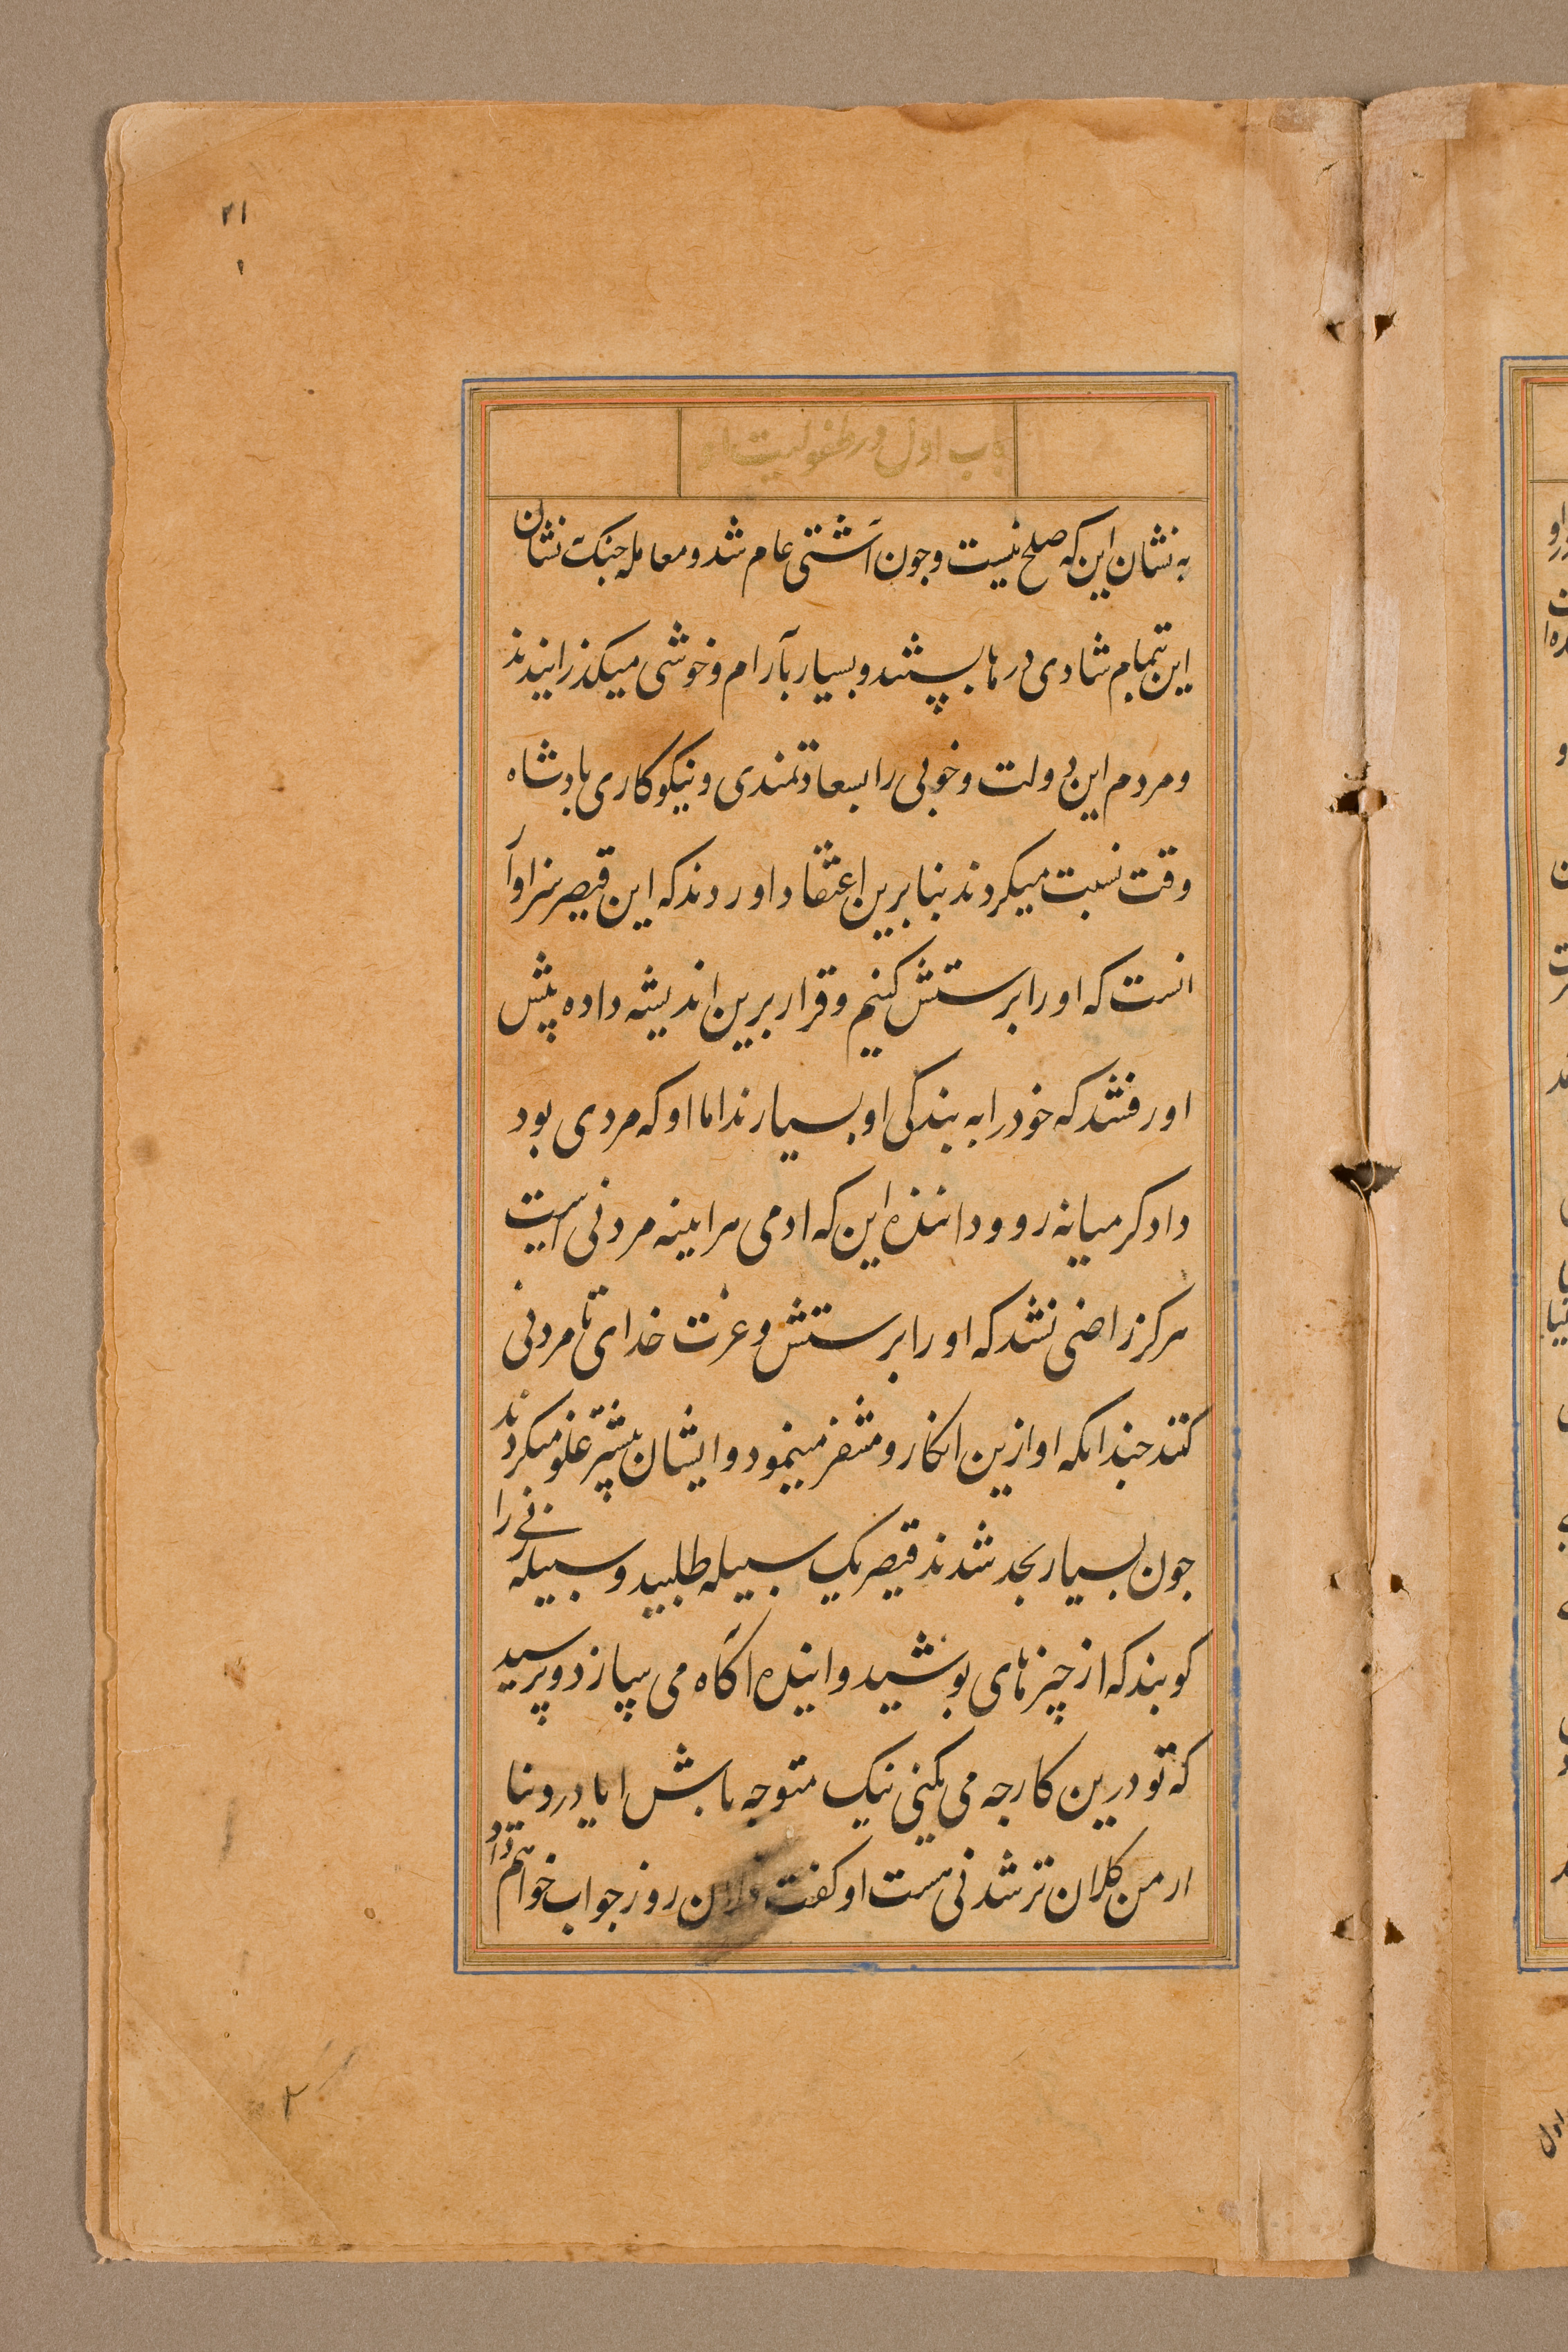 ۲۱
۱
باب اول در طفولیت او
به نشان این که صلح نیست و جون آشتی عام شد و معامله جنکت نشان
این بتمام شادی درها بپستند و بسیار بآرام و خوشی میکذرانیدند
و مردم این دولت و خوبی را بسعادتمندی و نیکو کاری بادشاه
وقت نسبت میکردند بنابرین اعتقاد اوردند که این قیصر سزاوا
انست که او را برستش کنیم و قرار برین اندیشه داده پیش
او رفتند که خود را به بندکی او بسپارند اما او که مردی بود
دادکر میانه رو و داننده این که ادمی هراینه مردنی است
هرکز راضی نشد که او را برستش و عزت خدای نامردنی
کنند جندانکه او ازین انکار و متنفر مینمود و ایشان بیشتر غلو میکردند
جون بسیار بجد شدند قیصر یک سبیله طلبید و سبیله زنی را
کویند که از چیزهای بوشیده و اینده اکاه می سازد و پرسید
که تو درین کار جه می بکنی نیک متوجه باش ایا در دنیا
از من کلان تر شدنی هست او کفت فلان روز جواب خواهم داد